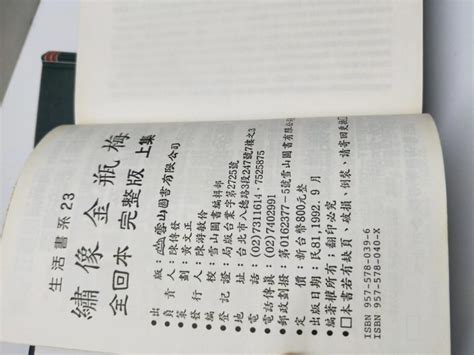 生活書系23
繡像金瓶梅
全回本 完整版 上集
出版：雪山圖書有限公司
負責人：陳傳發
策劃：黃文正
發行人：陳游敏伶
編校：雪山圖書編輯部
登記證：局版台業字第2725號
地址：台北市八德路3段247號7樓之3
電話：(02)7311614・7525875
電話傳真：(02)7402991
郵政劃撥：第0162377-5號雪山圖書有限公司
定價：新台幣800元整
出版日期：民81,1992.9月
編著權所有：翻印必究
□本書若有缺頁、破損、倒裝、請寄回更換
ISBN 957-578-039-6
ISBN 957-578-040-X